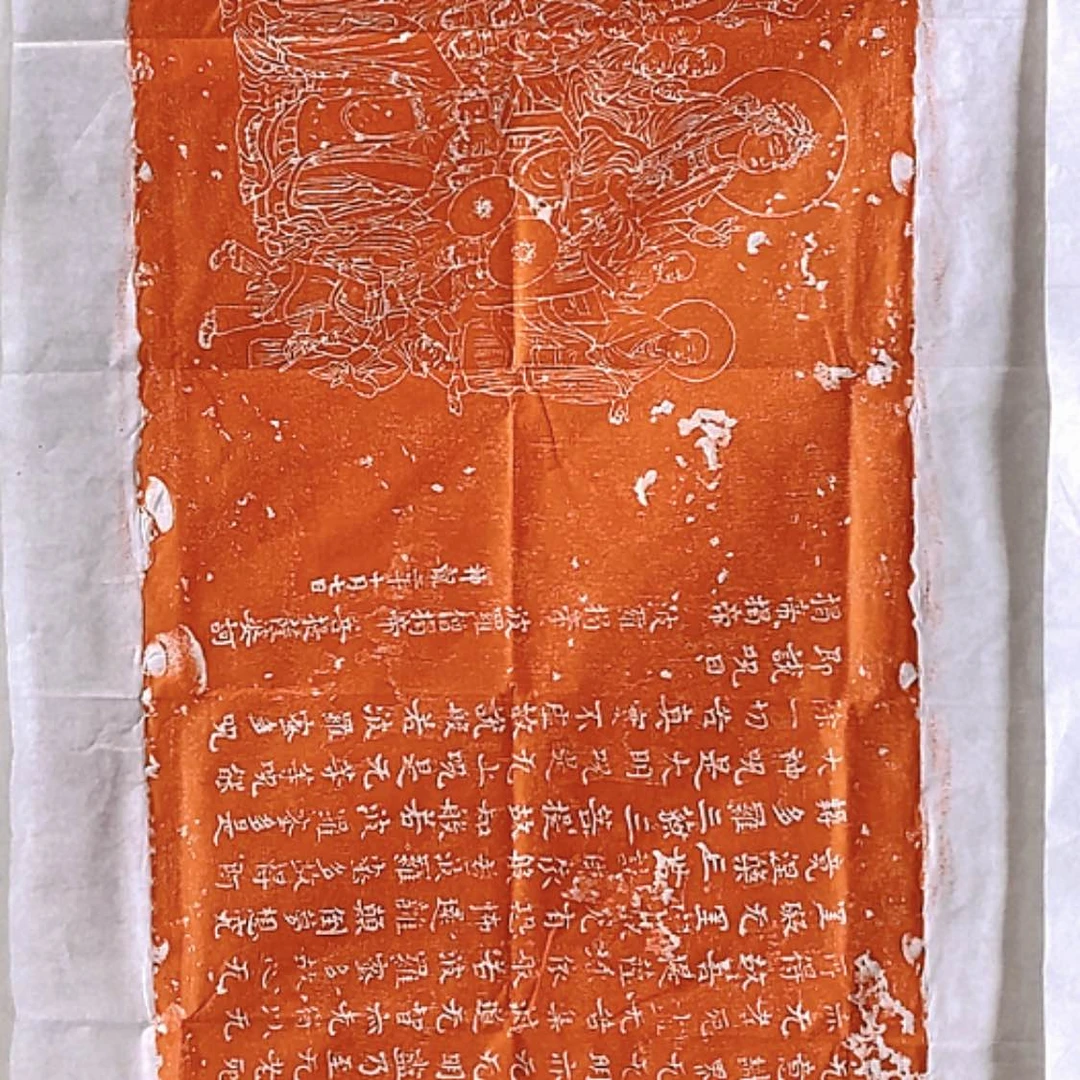 无意識界无无明亦无无明盡乃至无老死
亦无老死盡无苦集滅道无智亦无得以无
所得故菩提薩埵依般若波羅蜜多故心无
罣礙无罣礙故无有恐怖遠離顛倒夢想究
竟涅槃三世諸佛依般若波羅蜜多故得阿
耨多羅三藐三菩提故知般若波羅蜜多是
大神咒是大明咒是无上咒是无等等咒能
除一切苦真實不虛故說般若波羅蜜多咒
即說咒曰
揭帝揭帝 波羅揭帝 波羅僧揭帝 菩提薩婆訶
神龍二年十月七日